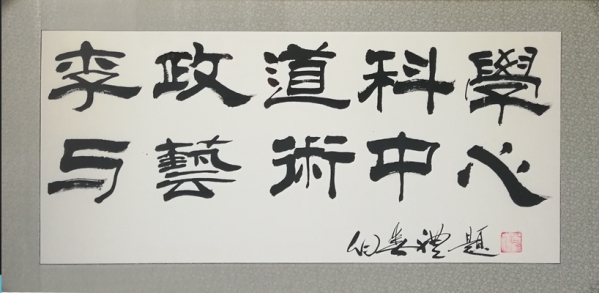 李政道科學
与藝術中心
禮題